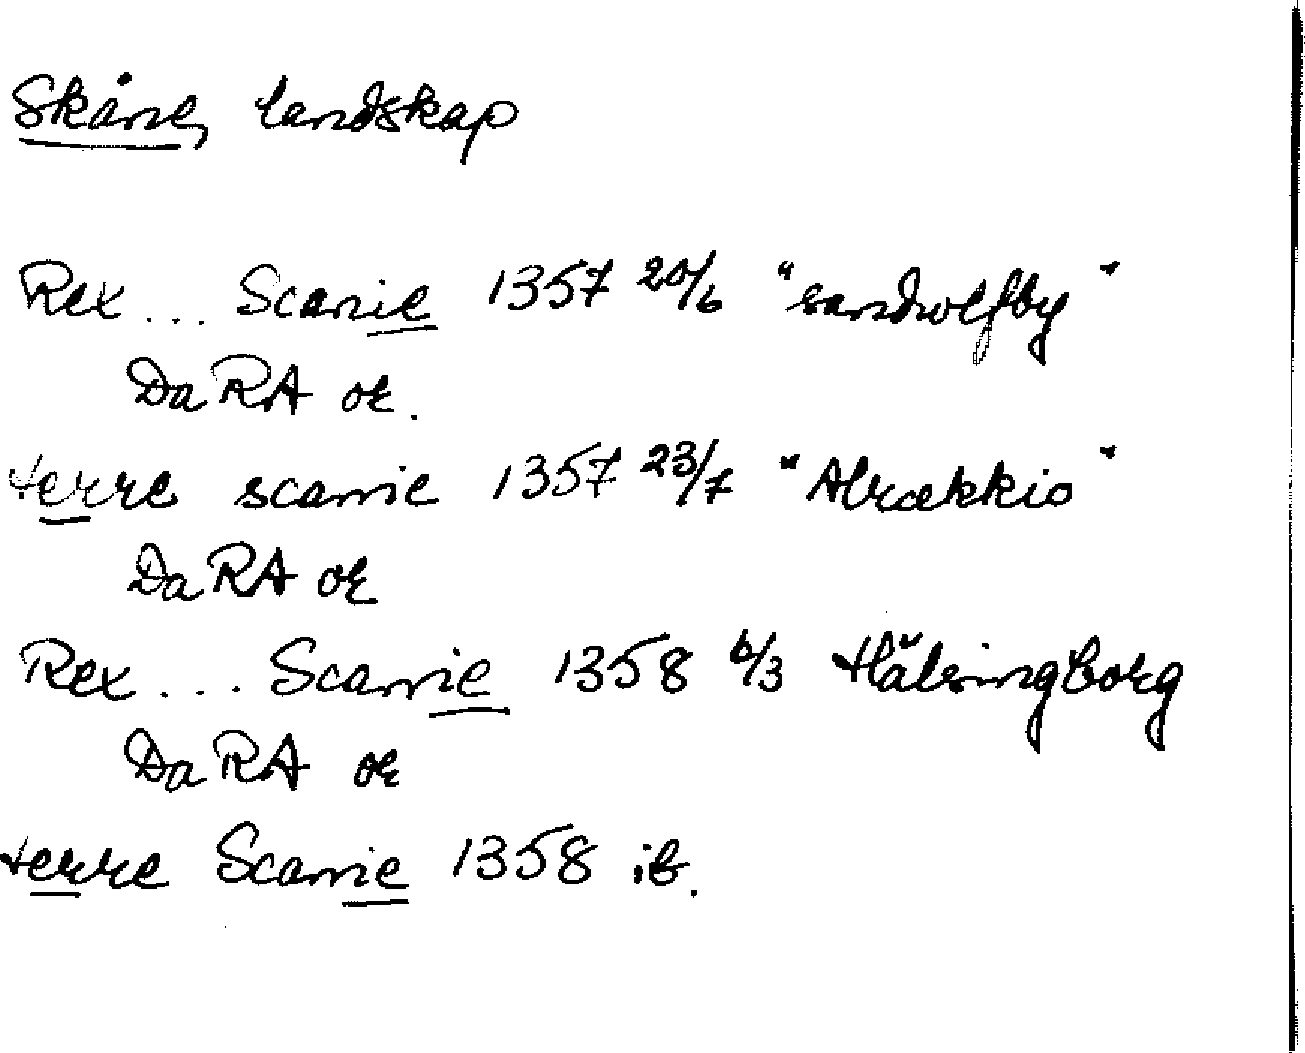 Skåne, landskap
Rex ... Scanie 1357 20/6 "sandwlfby"
DaRA or.
terre scanie 1357 23/7 "Abrækkio"
DaRA or
Rex ... Scanie 1358 6/3 Hälsingborg
DaRA or
terre Scanie 1358 ib.